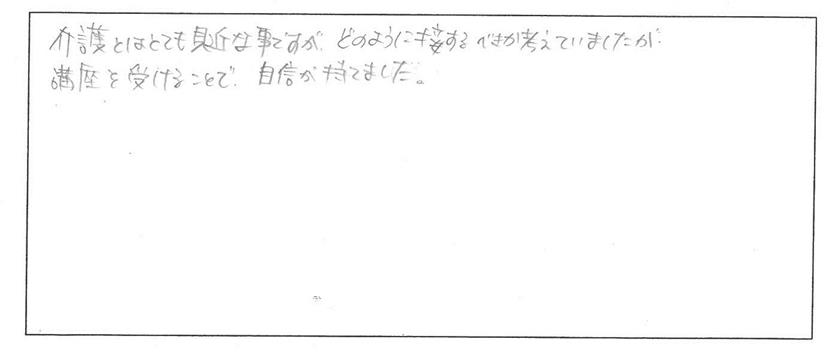 介護とはとても身近な事ですが、どのように接するべきか考えていましたが
講座を受けることで、自信が持てました。